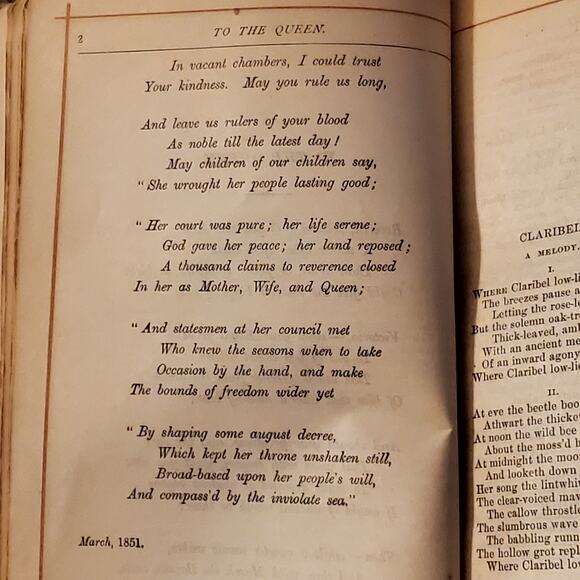 2
TO THE QUEEN.
In vacant chambers, I could trust
Your kindness. May you rule us long,
And leave us rulers of your blood
As noble till the latest day!
May children of our children say,
"She wrought her people lasting good;
"Her court was pure; her life serene;
God gave her peace; her land reposed;
A thousand claims to reverence closed
In her as Mother, Wife, and Queen;
"And statesmen at her council met
Who knew the seasons when to take
Occasion by the hand, and make
The bounds of freedom wider yet
"By shaping some august decree,
Which kept her throne unshaken still,
Broad-based upon her people's will,
And compass'd by the inviolate sea."
March, 1851.
CLARIBEL
A MELODY.
I.
WHERE Claribel low-li
The breezes pause a
Letting the rose-le
But the solemn oak-tr
Thick-leaved, am
With an ancient me
Of an inward agony
Where Claribel low-lie
II.
At eve the beetle boo
Athwart the thicke
At noon the wild bee
About the moss'd h
At midnight the moo
And looketh down
Her song the lintwhi
The clear-voiced mav
The callow throstle
The slumbrous wave
The babbling runn
The hollow grot repl
Where Claribel lo